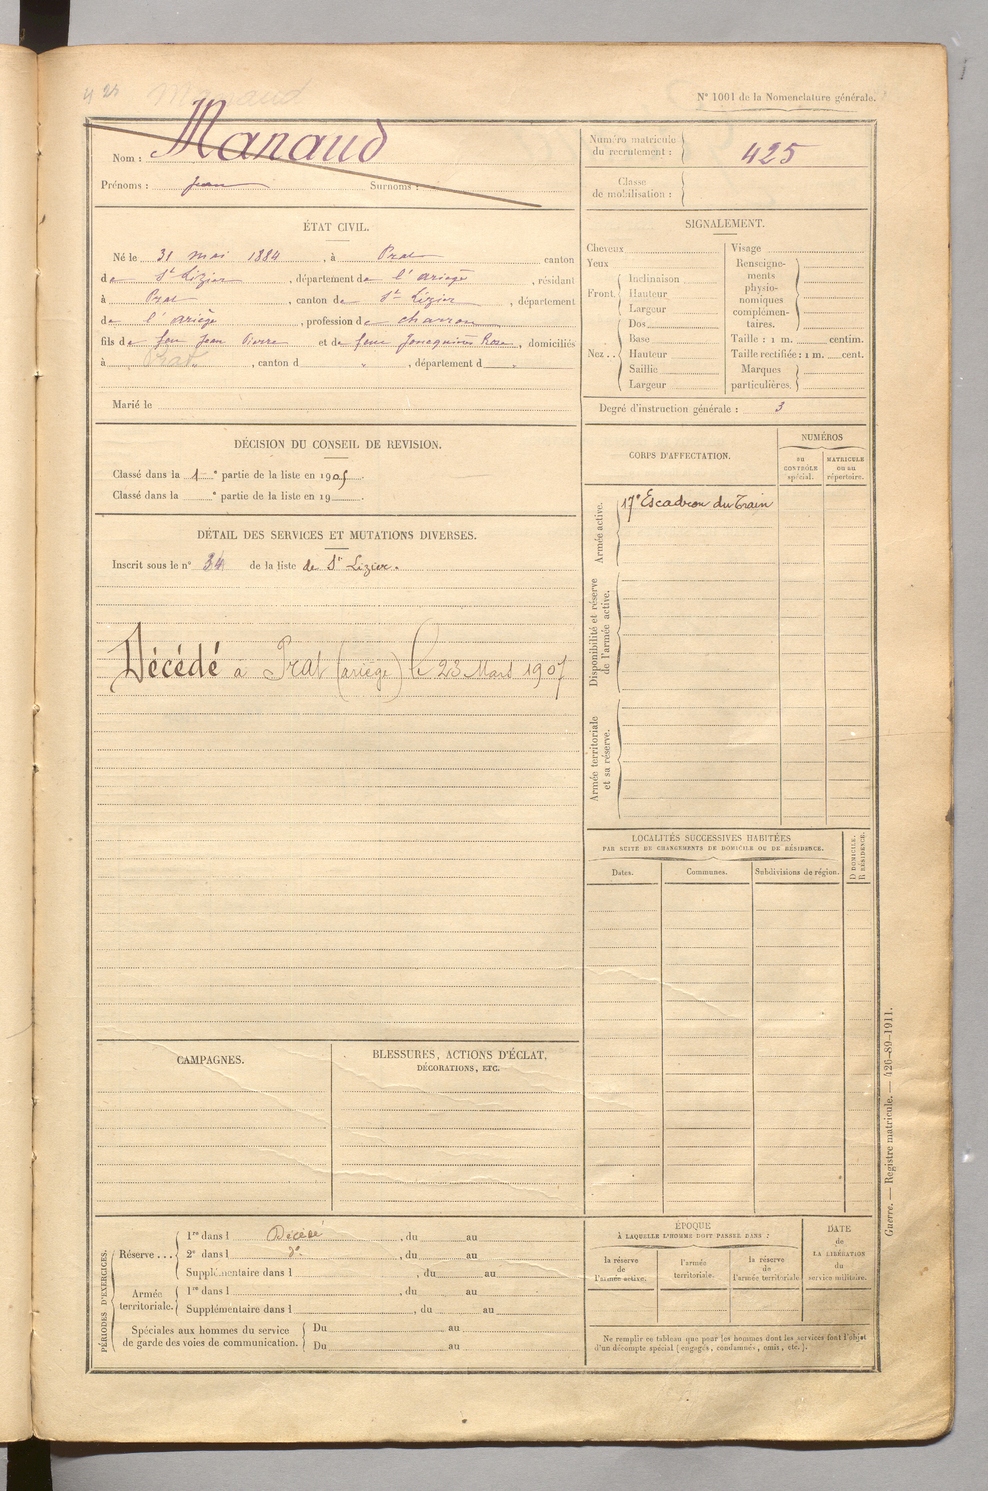 425 Manaud
N° 1001 de la Nomenclature générale.
Nom : Manaud
Prénoms : Jean Surnoms :
Numéro matricule du recrutement : 425
Classe de mobilisation :
ÉTAT CIVIL.
Né le 31 mai 1884, à Prat canton
de St Lizier, département de l'ariège, résidant
à Prat, canton de St Lizier, département
de l'ariège, profession de charron
fils de feu Jean Pierre et de feue Joacquine Rose, domiciliés
à Prat, canton d " , département d "
Marié le
SIGNALEMENT.
Cheveux
Yeux
Front. Inclinaison
Hauteur
Largeur
Dos
Nez.. Base
Hauteur
Saillie
Largeur
Visage
Renseigne-
ments
physio-
nomiques
complémen-
taires.
Taille : 1 m. centim.
Taille rectifiée : 1 m. cent.
Marques
particulières.
Degré d'instruction générale : 3
DÉCISION DU CONSEIL DE REVISION.
Classé dans la 1e partie de la liste en 1905.
Classé dans la e partie de la liste en 19 .
DÉTAIL DES SERVICES ET MUTATIONS DIVERSES.
Inscrit sous le n° 34 de la liste de St Lizier.
Décédé à Prat (ariège) le 23 Mars 1907
CORPS D'AFFECTATION.
NUMÉROS
au
CONTRÔLE
spécial.
MATRICULE
ou au
répertoire.
Armée active.
17e Escadron du Train
Disponibilité et réserve
de l'armée active.
Armée territoriale
et sa réserve.
LOCALITÉS SUCCESSIVES HABITÉES
PAR SUITE DE CHANGEMENTS DE DOMICILE OU DE RÉSIDENCE.
D DOMICILE.
R RÉSIDENCE.
Dates. Communes. Subdivisions de région.
CAMPAGNES.
BLESSURES, ACTIONS D'ÉCLAT,
DÉCORATIONS, ETC.
PÉRIODES D'EXERCICES.
Réserve ... 1re dans l Décédé, du au
2e dans l do, du au
Supplémentaire dans l , du au
Armée
territoriale. 1re dans l , du au
Supplémentaire dans l , du au
Spéciales aux hommes du service
de garde des voies de communication. Du au
Du au
ÉPOQUE
À LAQUELLE L'HOMME DOIT PASSER DANS :
la réserve
de
l'armée active.
l'armée
territoriale.
la réserve
de
l'armée territoriale
DATE
de
LA LIBÉRATION
du
service militaire.
Ne remplir ce tableau que pour les hommes dont les services font l'objet
d'un décompte spécial (engagés, condamnés, omis, etc.).
Guerre. — Registre matricule. — 426-89-1911.